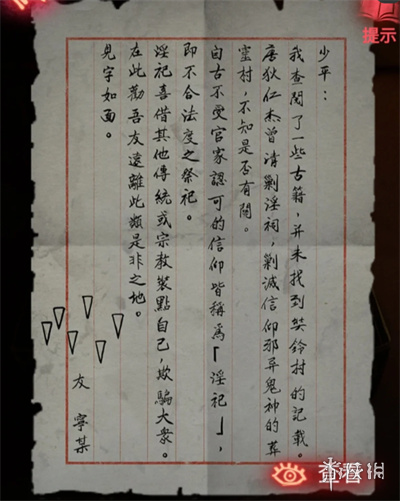 提示
少平：
我查閱了一些古籍，並未找到奘鈴村的記載。
唐狄仁杰曾清剿淫祠，剿滅信仰邪异鬼神的葬
村，不知是否有關。
自古不受官家認可的信仰皆稱爲「淫祀」，
即不合法度之祭祀。
淫祀喜借其他傳統或宗教裝點自己，欺騙大衆。
在此勸吾友遠離此類是非之地。
見字如面。
友 寧某
查看